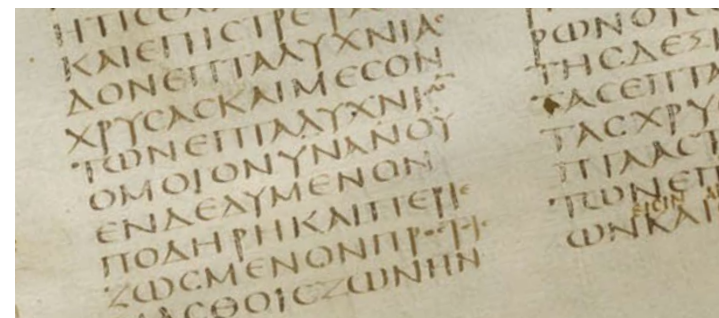 ΚΑΙΕΠΙϹΤΡΕΨΑ
ΔΟΝΕΠΤΑΛΥΧΝΙΑϹ
ΧΡΥϹΑϹΚΑΙΜΕϹΟΝ
ΤΩΝΕΠΤΑΛΥΧΝΙΩ
ΟΜΟΙΟΝΥΝΑΝΟΥ
ΕΝΔΕΔΥΜΕΝΟΝ
ΠΟΔΗΡΗΚΑΙΠΕΡΙΕ
ΖΩϹΜΕΝΟΝΠΡΟϹΤΙ
ΜΑϹΘΟΙϹΖΩΝΗΝ
ΡΩΝΟΥϹ
ΤΗϹΔΕΞΙ
ΤΑϹΕΠΤΑ
ΤΑϹΧΡΥ
ΠΤΑΑϹΤ
ΤΩΝΕΠ
ΕΙϹΙΝ
ΩΝΚΑΙ